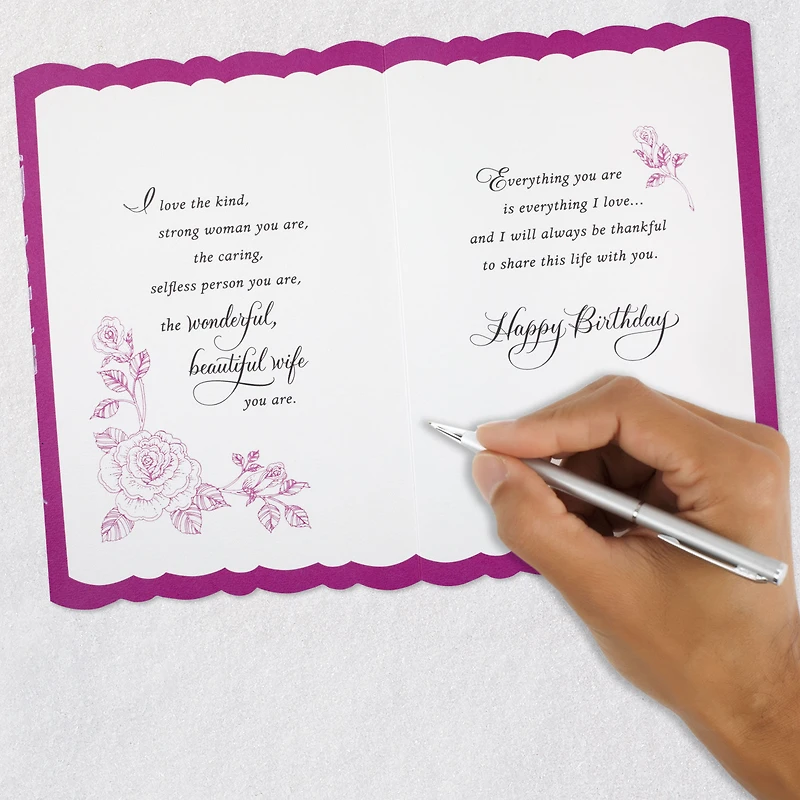 I love the kind,
strong woman you are,
the caring,
selfless person you are,
the wonderful,
beautiful wife
you are.
Everything you are
is everything I love...
and I will always be thankful
to share this life with you.
Happy Birthday